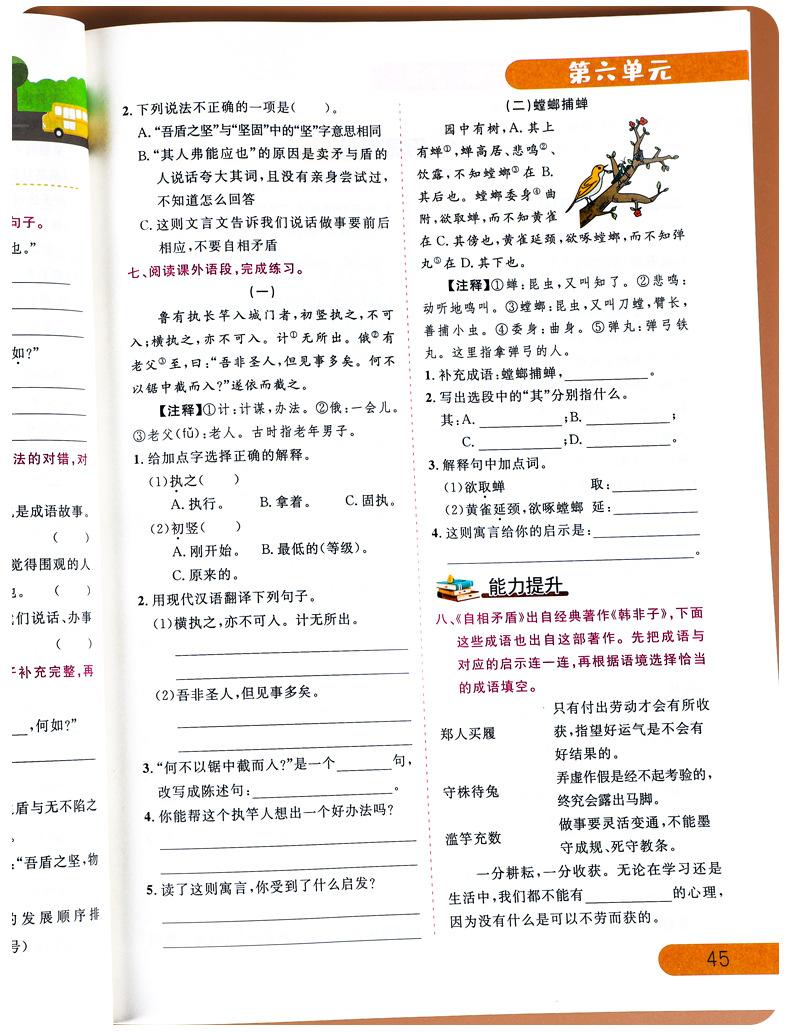 句子。
也。”
如?”
法的对错,对
是成语故事。
( )
觉得围观的人
( )
们说话、办事
( )
补充完整,再
___,何如?”
盾与无不陷之
“吾盾之坚,物
的发展顺序排
号)
第六单元
2. 下列说法不正确的一项是( )。
A. “吾盾之坚”与“坚固”中的“坚”字意思相同
B. “其人弗能应也”的原因是卖矛与盾的
人说话夸大其词,且没有亲身尝试过,
不知道怎么回答
C. 这则文言文告诉我们说话做事要前后
相应,不要自相矛盾
七、阅读课外语段,完成练习。
(一)
鲁有执长竿入城门者,初竖执之,不可
入;横执之,亦不可入。计①无所出。俄②有
老父③至,曰:“吾非圣人,但见事多矣。何不
以锯中截而入?”遂依而截之。
【注释】①计:计谋,办法。②俄:一会儿。
③老父(fǔ):老人。古时指老年男子。
1. 给加点字选择正确的解释。
(1)执之( )
A. 执行。 B. 拿着。 C. 固执。
(2)初竖( )
A. 刚开始。 B. 最低的(等级)。
C. 原来的。
2. 用现代汉语翻译下列句子。
(1)横执之,亦不可入。计无所出。
(2)吾非圣人,但见事多矣。
3. “何不以锯中截而入?”是一个______句,
改写成陈述句:______________。
4. 你能帮这个执竿人想出一个好办法吗?
5. 读了这则寓言,你受到了什么启发?
(二)螳螂捕蝉
园中有树,A. 其上
有蝉①,蝉高居、悲鸣②、
饮露,不知螳螂③在 B.
其后也。螳螂委身④曲
附,欲取蝉,而不知黄雀
在 C. 其傍也,黄雀延颈,欲啄螳螂,而不知弹
丸⑤在 D. 其下也。
【注释】①蝉:昆虫,又叫知了。②悲鸣:
动听地鸣叫。③螳螂:昆虫,又叫刀螳,臂长,
善捕小虫。④委身:曲身。⑤弹丸:弹弓铁
丸。这里指拿弹弓的人。
1. 补充成语:螳螂捕蝉,__________。
2. 写出选段中的“其”分别指什么。
其:A. __________;B. __________;
C. __________;D. __________。
3. 解释句中加点词。
(1)欲取蝉 取:__________
(2)黄雀延颈,欲啄螳螂 延:__________
4. 这则寓言给你的启示是:____________
______________________________。
能力提升
八、《自相矛盾》出自经典著作《韩非子》,下面
这些成语也出自这部著作。先把成语与
对应的启示连一连,再根据语境选择恰当
的成语填空。
只有付出劳动才会有所收
郑人买履 获,指望好运气是不会有
好结果的。
弄虚作假是经不起考验的,
守株待兔
终究会露出马脚。
做事要灵活变通,不能墨
滥竽充数
守成规、死守教条。
一分耕耘,一分收获。无论在学习还是
生活中,我们都不能有__________的心理,
因为没有什么是可以不劳而获的。
45